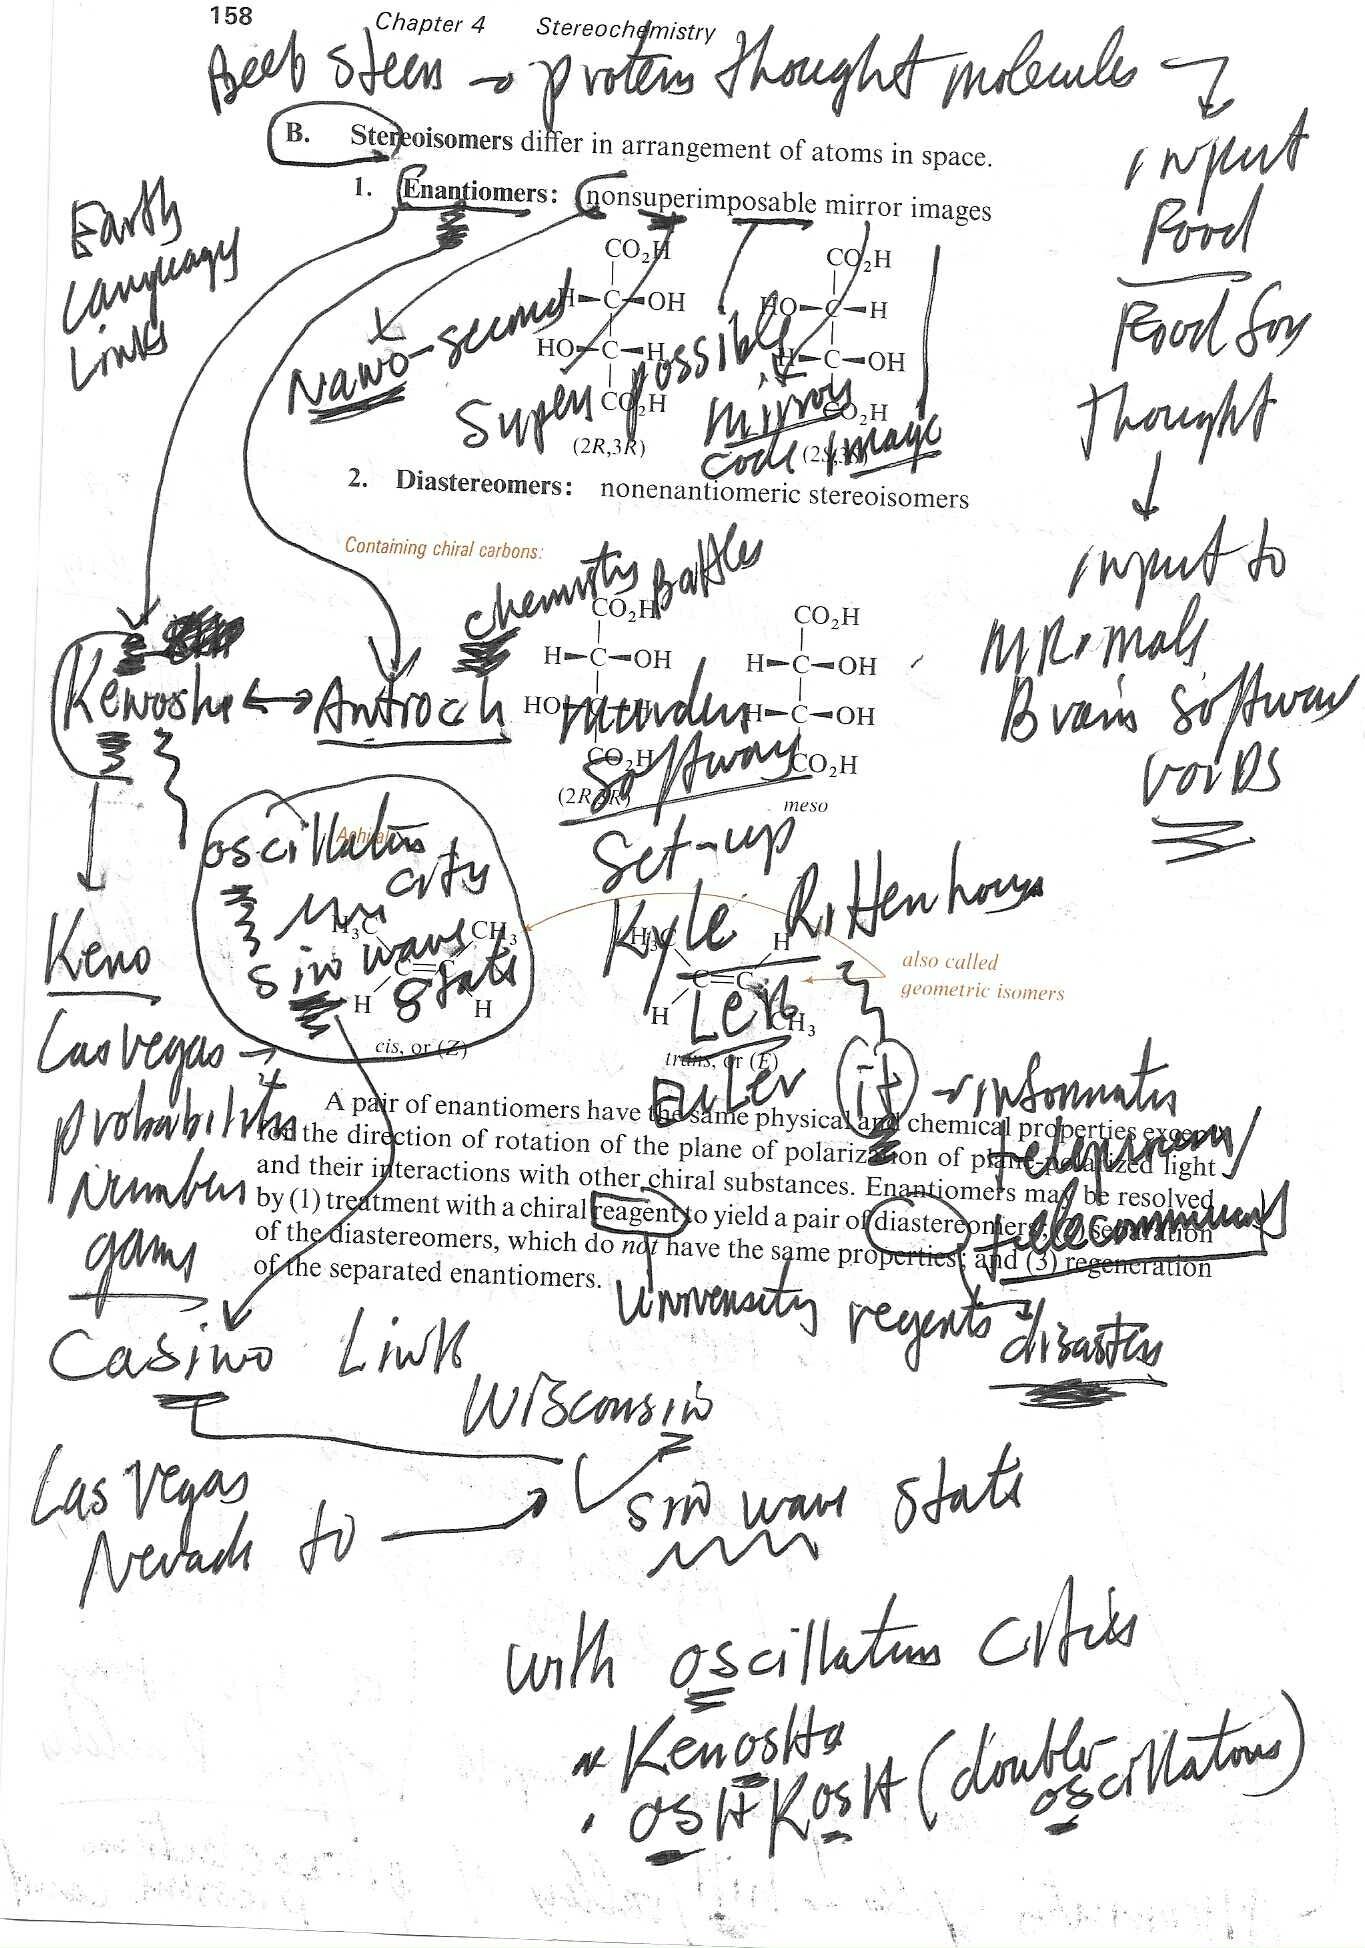 158 Chapter 4 Stereochemistry
Beef Steen → protein thought molecules →
B. Stereoisomers differ in arrangement of atoms in space.
1. Enantiomers: nonsuperimposable mirror images
input
Food
Food for
thought
input to
MR. Mals
Brain Software
Earth
Language
Links
CO₂H CO₂H
H C OH HO C H
HO C H H C OH
CO₂H CO₂H
(2R,3R)
Nano-second
Super possible
mirror
code image
2. Diastereomers: nonenantiomeric stereoisomers
Containing chiral carbons:
chemistry Battles
CO₂H CO₂H
H C OH H C OH
HO H C OH
CO₂H CO₂H
(2R,3R) meso
Kenosha ↔ Antioch
murder
Software
Set-up
Kyle Rittenhouse
Len
Euler it → information
telecommunications
oscillation
city
sin wave
State
Achiral
H₃C CH₃
C=C
H H
cis, or (Z)
H₃C H
C=C
H CH₃
trans, or (E)
also called
geometric isomers
Keno
Las Vegas →
probability
number
game
A pair of enantiomers have the same physical and chemical properties except
for the direction of rotation of the plane of polarization of plane-polarized light
and their interactions with other chiral substances. Enantiomers may be resolved
by (1) treatment with a chiral reagent to yield a pair of diastereomers; (2) separation
of the diastereomers, which do not have the same properties; and (3) regeneration
of the separated enantiomers.
University regents
disaster
Casino Link
Wisconsin
Las Vegas
Nevada to →
sin wave State
with oscillation cities
Kenosha
OSHKOSH (double oscillations)